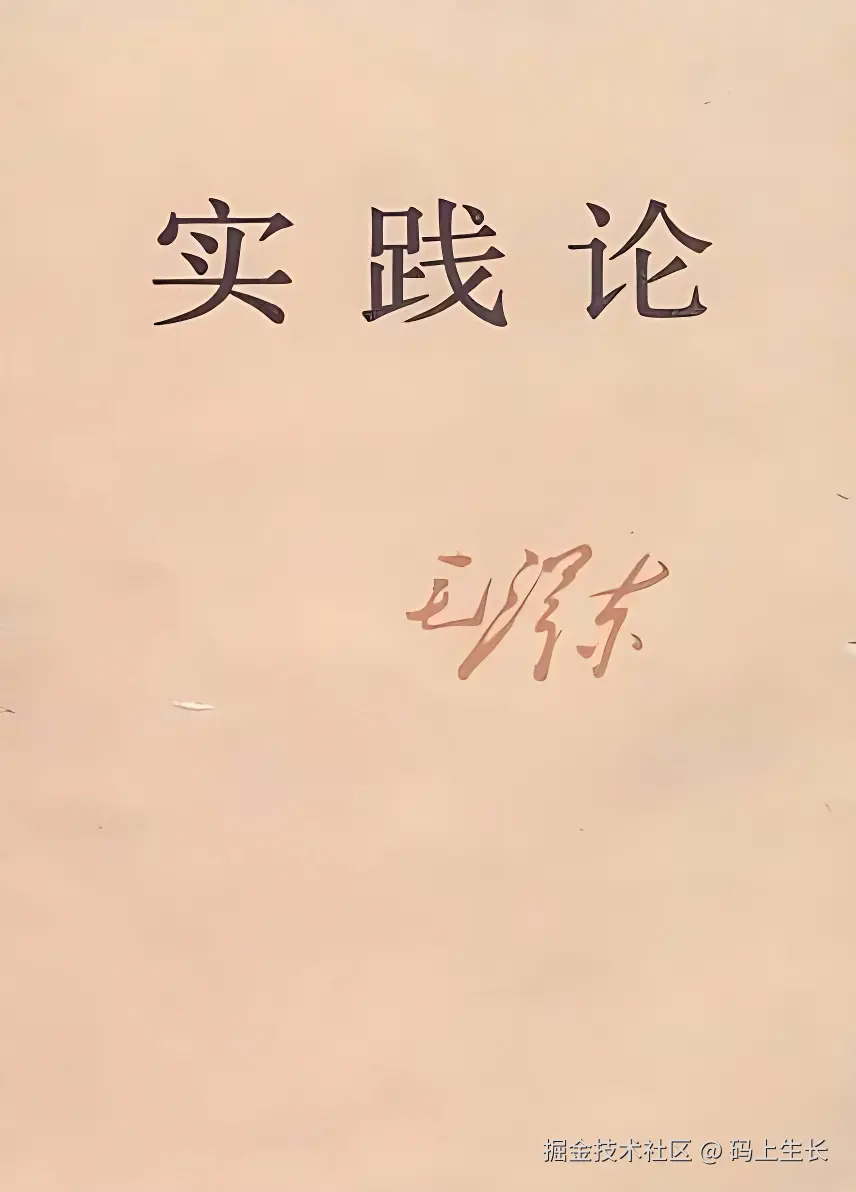 实践论
毛泽东
掘金技术社区 @ 码上生长